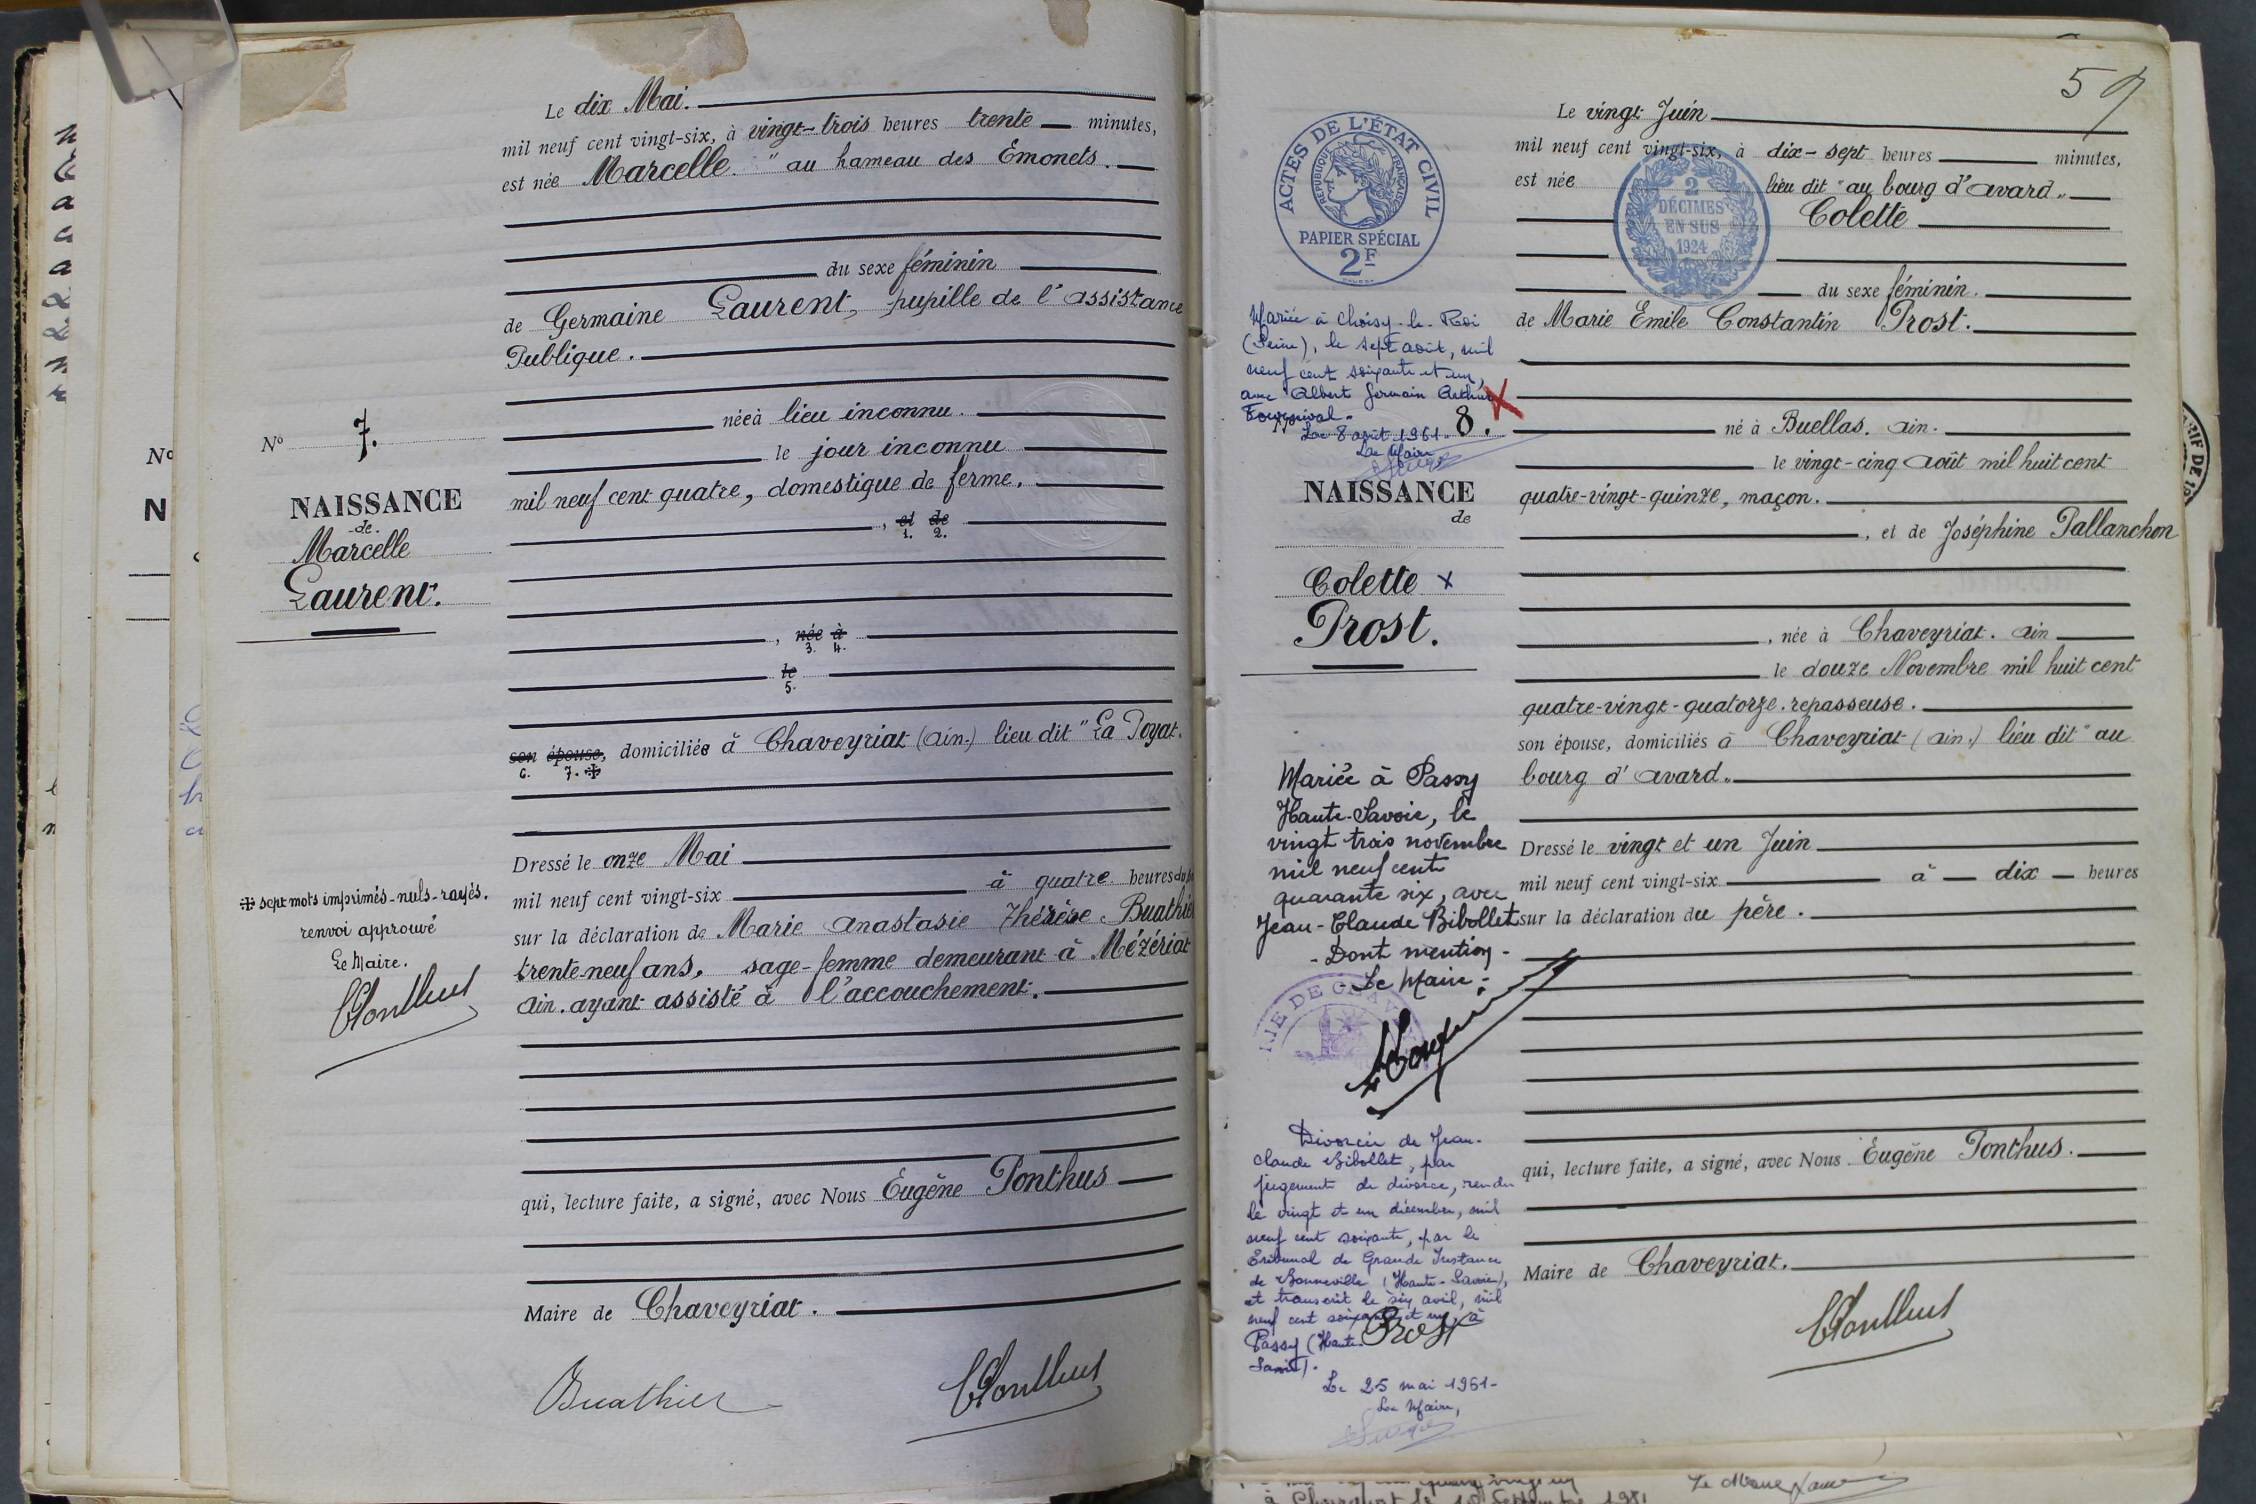 Le dix Mai.
mil neuf cent vingt-six, à vingt-trois heures trente minutes,
est née Marcelle. " au hameau des Emonets.
du sexe féminin
de Germaine Laurent, pupille de l'assistance
Publique.
née à lieu inconnu.
le jour inconnu
mil neuf cent quatre, domestique de ferme.
, et de
1. 2.
, née à
3. 4.
le
5.
son épouse, domiciliée à Chaveyriat (Ain.) lieu dit "La Poyat.
6. 7. ✠
Dressé le onze Mai
mil neuf cent vingt-six à quatre heures du
sur la déclaration de Marie Anastasie Thérèse Buathier
trente-neuf ans, sage-femme demeurant à Mézériat
Ain. ayant assisté à l'accouchement.
qui, lecture faite, a signé, avec Nous Eugène Ponthus
Maire de Chaveyriat.
Buathier
EPonthus
No 7.
NAISSANCE
de
Marcelle
Laurent.
✠ sept mots imprimés nuls rayés.
renvoi approuvé
Le Maire.
EPonthus
No
N
59
Le vingt Juin
mil neuf cent vingt-six, à dix-sept heures minutes,
est née lieu dit "au bourg d'avard"
Colette
du sexe féminin.
de Marie Emile Constantin Prost.
né à Buellas. Ain.
le vingt-cinq Août mil huit cent
quatre-vingt-quinze, maçon.
, et de Joséphine Pallanchon
, née à Chaveyriat. Ain
le douze Novembre mil huit cent
quatre-vingt-quatorze. repasseuse.
son épouse, domiciliés à Chaveyriat (Ain.) lieu dit "au
bourg d'avard"
Dressé le vingt et un Juin
mil neuf cent vingt-six à dix heures
sur la déclaration du père.
qui, lecture faite, a signé, avec Nous Eugène Ponthus.
Maire de Chaveyriat.
EPonthus
ACTES DE L'ÉTAT CIVIL
RÉPUBLIQUE FRANÇAISE
PAPIER SPÉCIAL
2F
2
DÉCIMES
EN SUS
1924
Mariée à Choisy-le-Roi
(Seine), le sept août, mil
neuf cent soixante et un,
avec Albert Germain Arthur
Fournival.
Le 8 août 1961.
Le Maire
8.
NAISSANCE
de
Colette x
Prost.
Mariée à Passy
Haute-Savoie, le
vingt trois novembre
mil neuf cent
quarante six, avec
Jean-Claude Bibollet
- Dont mention -
Le Maire:
Divorcée de Jean-
Claude Bibollet, par
jugement de divorce, rendu
le vingt et un décembre, mil
neuf cent soixante, par le
Tribunal de Grande Instance
de Bonneville (Haute-Savoie),
et transcrit le six avril, mil
neuf cent soixante et un, à
Passy (Haute-
Savoie).
Prost
Le 25 mai 1961-
Le Maire,